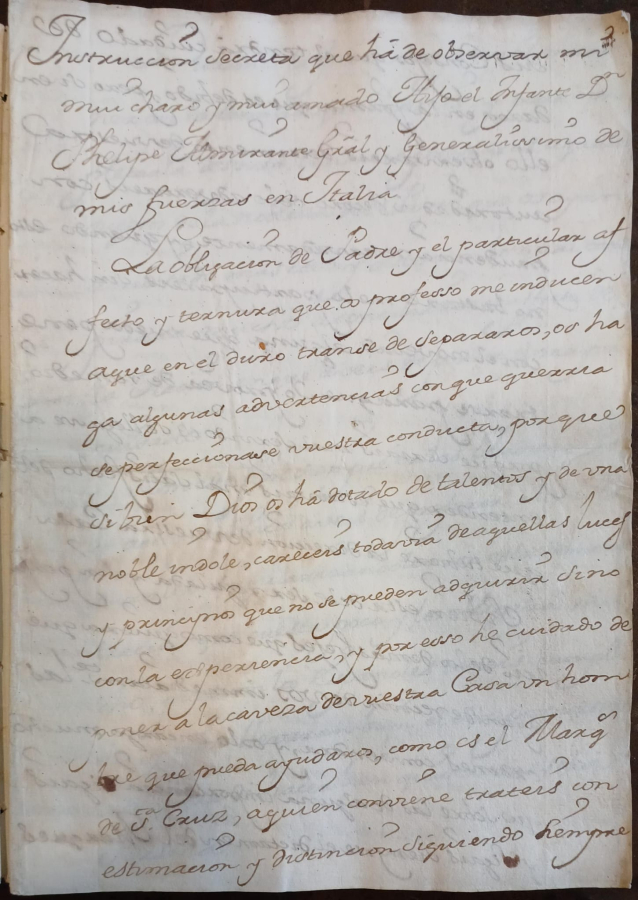 Instruccion secreta que há de observar mi
mui charo y mui amado Hijo el Infante Dn
Phelipe Almirante Grâl y Generalissimo de
mis fuerzas en Italia
La obligacion de Padre y el particular af
fecto y ternura que os professo me inducen
aque en el duro transe de separaros, os ha
ga algunas advertencias con que querria
se perfeccionase vuestra conducta, porque
si bien Dios os há dotado de talentos y de una
noble indole, careceis todavia de aquellas luces
y principios que no se pueden adquirir sino
con la experiencia, y por esso he cuidado de
poner a la caveza de vuestra Casa un hom
bre que pueda ayudaros, como es el Marqs
de Sta Cruz, a quien conviene trateis con
estimacion y distincion siguiendo siempre